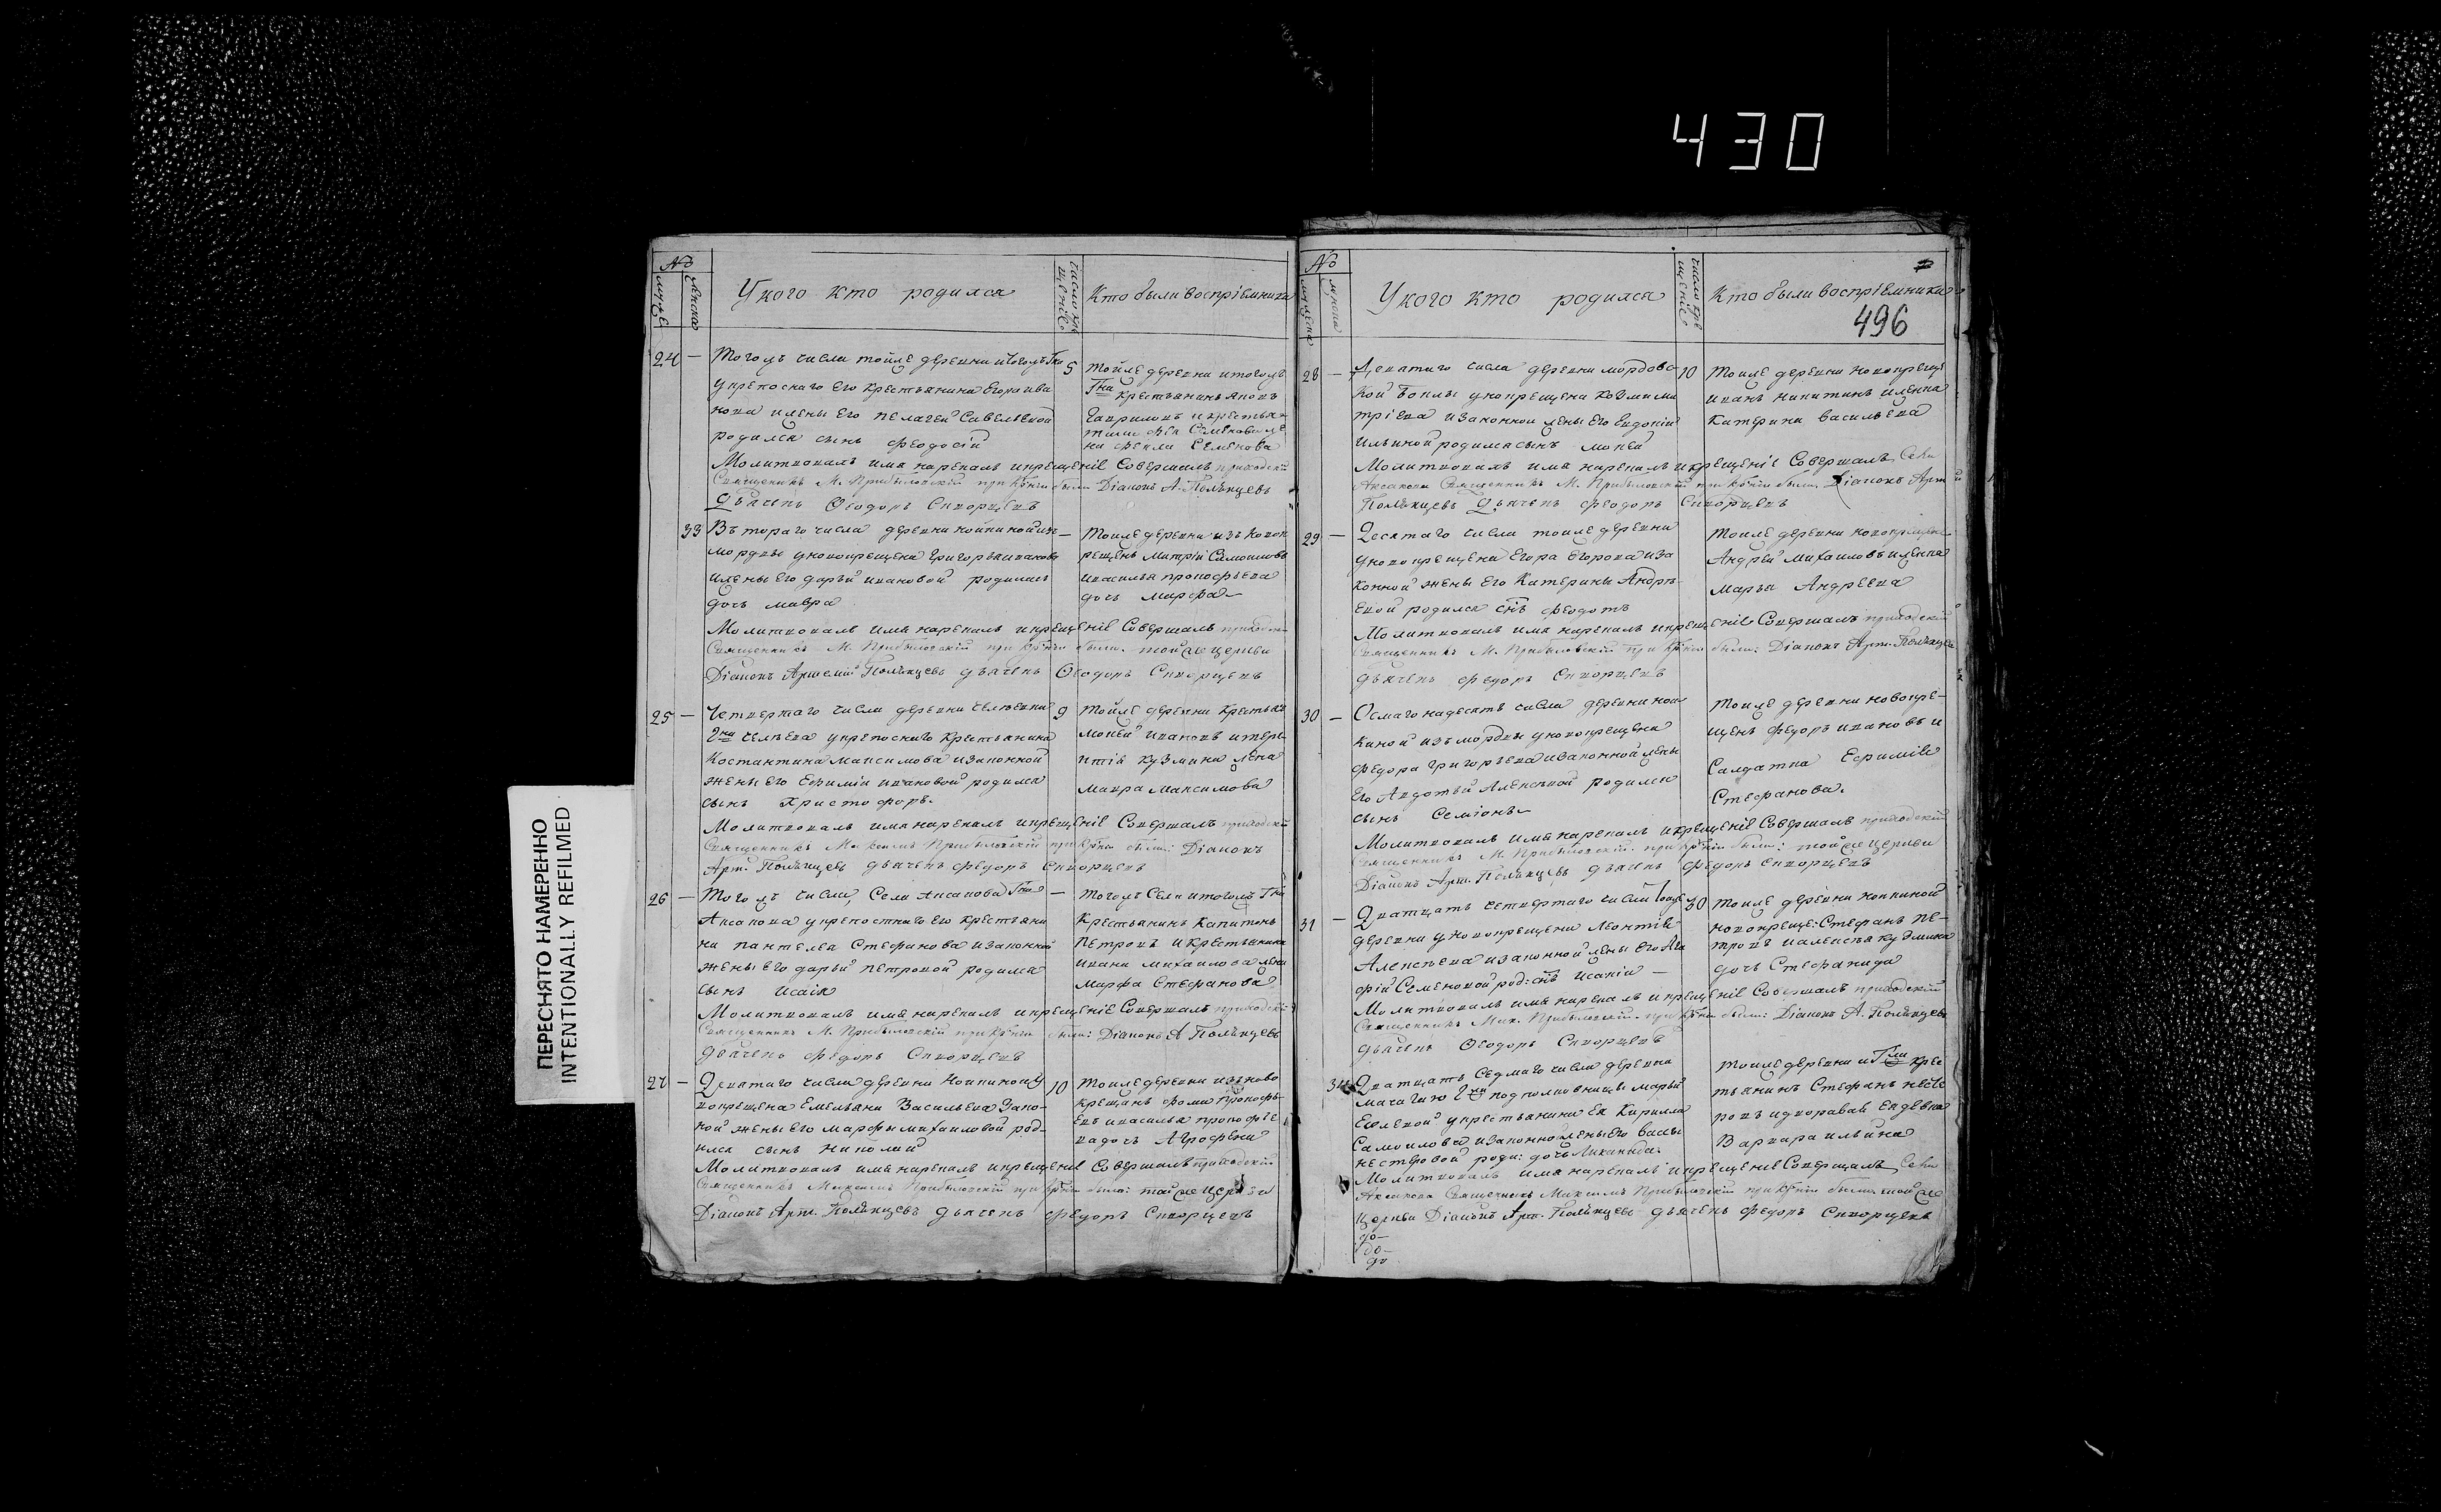 430
ПЕРЕСНЯТО НАМЕРЕННО
INTENTIONALLY REFILMED
№
мужеска
женска
У кого кто родился
Кто были воспріемники
24 — Тогожъ числа тойже деревни итогожъ Гна
5
укрепоснаго его крестьянина Егора ива
нова ижены его пелагеи Савельевой
родился сынъ феодосій
тойже деревни итогожъ
Гна крестьянинъ яковъ
Гавриловъ икрестья
фекла Семенова
Молитвовалъ имя нарекалъ икрещеніе Совершалъ приходскій
Священникъ М. Прибыловскій при крніи были Діаконъ А. Полянцевъ
Дьячекъ Феодоръ Скворцевъ
33 Втораго числа деревни нойкиной изъ
мордвы уновокрещена Григорья иванова
ижены его дарьи ивановой родилась
дочь мавра
—
Тойже деревни изъ новок
рещенъ митрій Самойловъ
ивасилья прокофьева
дочь марфа
Молитвовалъ имя нарекалъ икрещеніе Совершалъ приходскій
Священникъ М. Прибыловскій при крніи были: тойже церкви
Діаконъ Артемій Полянцевъ дьячекъ Феодоръ Скворцевъ
25 — Четвертаго числа деревни челюевки
9
Гна челюева укрепоснаго крестьянина
Костантина максимова изаконной
жены его Ефиміи ивановой родился
сынъ Христофоръ
Тойже деревни крестьян
мокей ивановъ итере
нтія кузмина жена
мавра максимова
Молитвовалъ имя нарекалъ икрещеніе Совершалъ приходскій
Священникъ Максимъ Прибыловскій при крніи были: Діаконъ
Арт. Полянцевъ дьячекъ федоръ Скворцевъ
26 — Тогожъ числа, Села Аксакова Гна
—
Аксакова укрепостнаго его крестьяни
на пантелея Стефанова изаконной
жены его дарьи петровой родился
сынъ Исаія
Тогожъ Села итогожъ Гна
Крестьянинъ Капитонъ
Петровъ икрестьянина
ивана михаилова жена
Марфа Стефанова
Молитвовалъ имя нарекалъ икрещеніе Совершалъ приходскій
Священникъ М. Прибыловскій при крніи были: Діаконъ А Полянцевъ
Дьячекъ федоръ Скворцевъ
27 — Девятаго числа деревни Нойкиной у
10
новокрещена Емельяна Васильева Зако-
ной жены его марфы михаиловой род-
ился сынъ николай
Тойже деревни изъ ново
крещанъ фома прокофь-
евъ ивасилья прокофіе
ва дочь Агрофена
Молитвовалъ имя нарекалъ икрещеніе Совершалъ приходскій
Священникъ Максимъ Прибыловскій при крніи были: тойже церкви
Діаконъ Арт. Полянцевъ дьячекъ федоръ Скворцевъ
№
У кого кто родился
Кто были воспріемники
496
28 — Девятаго числа деревни мордовс
10
кой Боклы уновокрещена Козмы ми
тріева изаконной жены его Евдокіи
Ильиной родился сынъ мокей
Тойже деревни новокреще
иванъ никитинъ иженка
Катерина васильева
Молитвовалъ имя нарекалъ икрещеніе Совершалъ Села
Аксакова Священникъ М. Прибыловскій при крніи были: Діаконъ Артемій
Полянцевъ Дьячекъ феодоръ Скворцевъ
29 — Десятаго числа тойже деревни
уновокрещена Егора Егорова иза
конной жены его Катерины Андре-
евой родился снъ феодотъ
Тойже деревни новокрещенъ
Андрей михаиловъ иженка
марья Андреева
Молитвовалъ имя нарекалъ икрещеніе Совершалъ приходскій
Священникъ М. Прибыловскій при крніи были: Діаконъ Арт. Полянцевъ
дьячекъ федоръ Скворцевъ
30 — Осмаго надесять числа деревни ной
киной изъ мордвы уновокрещена
федора Григорьева изаконной жены
его Авдотьи Алексевой родился
сынъ Семіонъ
Тойже деревни новокре-
щенъ федоръ ивановъ и
Салдатка Ефиміе
Стефанова.
Молитвовалъ имя нарекалъ икрещеніе Совершалъ приходскій
Священникъ М. Прибыловскій при крніи были: тойже церкви
Діаконъ Арт. Полянцевъ дьячекъ федоръ Скворцевъ
31 — Дватцать четвертаго числа тойже
30
деревни уновокрещена Леонтіе
Алексеева изаконной жены его Ага
фіи Семеновой род: снъ Исакій —
Тойже деревни нойкиной
новокреще: Стефанъ пе-
тровъ иалексея кузмина
дочь Стефанида
Молитвовалъ имя нарекалъ икрещеніе Совершалъ приходскій
Священникъ Мак. Прибыловскій при крніи были: Діаконъ А. Полянцевъ
дьячекъ Феодоръ Скворцевъ
34 Дватцать Седмаго числа деревни
Гжи подполковницы марьи
укрестьянина ея Кирилла
Самойлова изаконной жены его васы
нестеровой роди: дочь
Тойже деревни и Гжи крес
тьянинъ Стефанъ несте
ровъ
Варвара ильина
Молитвовалъ имя нарекалъ икрещеніе Совершалъ Села
Аксакова Священникъ Максимъ Прибыловскій при крніи были: тойже
Церкви Діаконъ Арт. Полянцевъ дьячекъ федоръ Скворцевъ